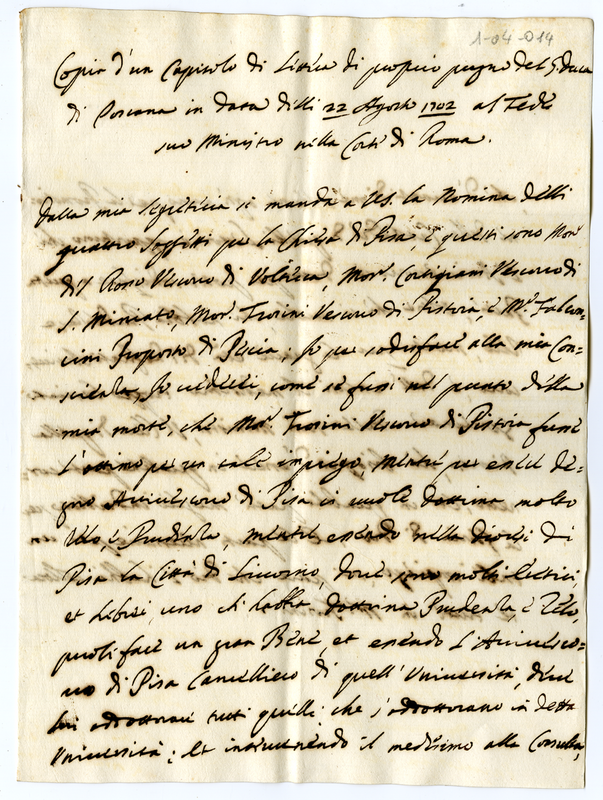 1-04-014
Copia d'un Capitolo di Lettera di proprio pugno del G. Duca
di Toscana in data delli 22 Agosto 1702 al Fede
suo Ministro nella Corte di Roma.
Dalla mia Segreteria si manda a VS. la Nomina delli
quattro Soggetti per la Chiesa di Pisa e questi sono Mons.r
del Rosso Vescovo di Volterra, Mons.r Cortigiani Vescovo di
S. Miniato, Mons.r Frosini Vescovo di Pistoia, e M.r Falcon=
cini Proposto di Pescia; Io per sodisfare alla mia Con=
scienza, Io crederei, come se fussi nel punto della
mia morte, che Mons.r Frosini Vescovo di Pistoia fusse
l'ottimo per un tale impiego, mentre per essere de=
gno Arcivescovo di Pisa ci vuole dottrina molto
Zelo, e Prudenza, mentre essendo nella Diocesi di
Pisa la Città di Livorno, dove sono molti Eretici,
et Ebrei, uno ch'habbia dottrina Prudenza, e Zelo,
puoli fare un gran Bene, et essendo l'Arcivesco=
vo di Pisa Cancelliero di quell'Università, deve
lui addottorare tutti quelli, che s'addottorano in detta
Università; Et intervenendo il medesimo alla Consulta,